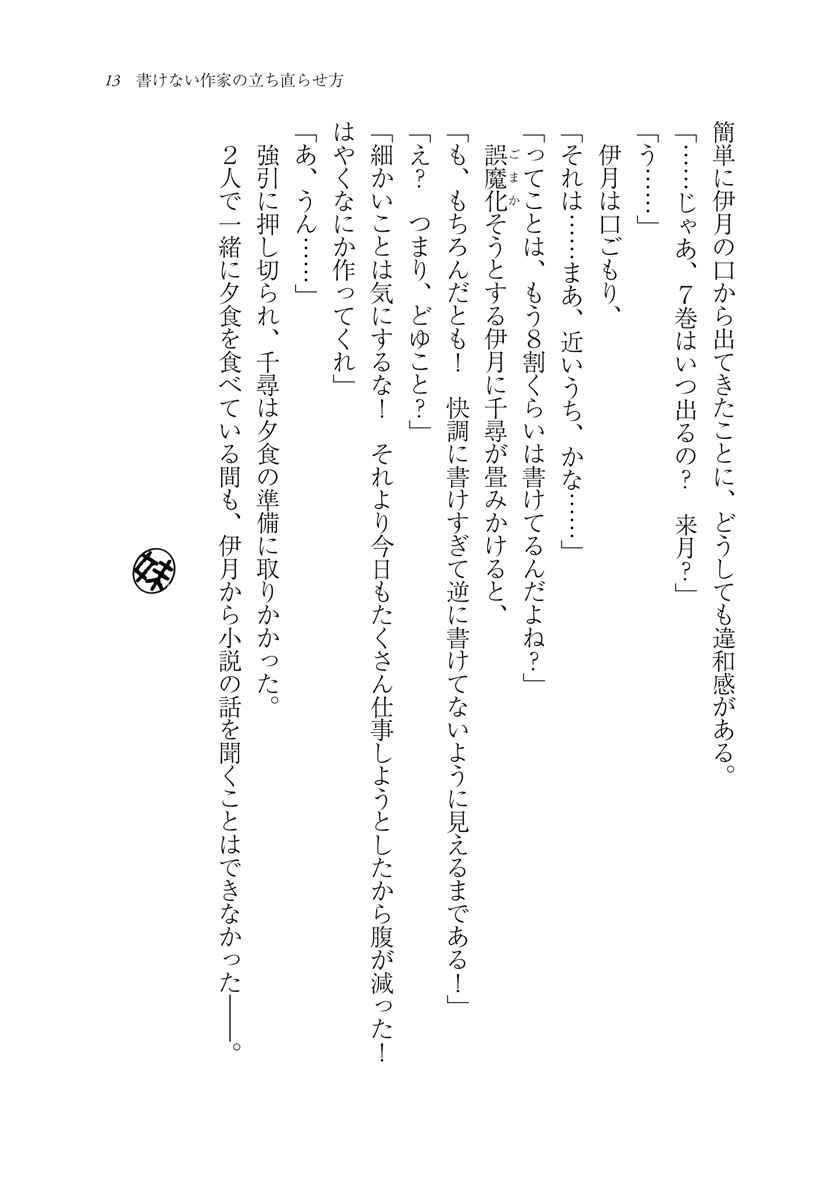 13 書けない作家の立ち直らせ方
簡単に伊月の口から出てきたことに、どうしても違和感がある。
「……じゃあ、７巻はいつ出るの？　来月？」
「う……」
　伊月は口ごもり、
「それは……まあ、近いうち、かな……」
「ってことは、もう８割くらいは書けてるんだよね？」
　誤魔化そうとする伊月に千尋が畳みかけると、
ごまか
「も、もちろんだとも！　快調に書けすぎて逆に書けてないように見えるまである！」
「え？　つまり、どゆこと？」
「細かいことは気にするな！　それより今日もたくさん仕事しようとしたから腹が減った！
はやくなにか作ってくれ」
「あ、うん……」
　強引に押し切られ、千尋は夕食の準備に取りかかった。
　２人で一緒に夕食を食べている間も、伊月から小説の話を聞くことはできなかった――。
妹